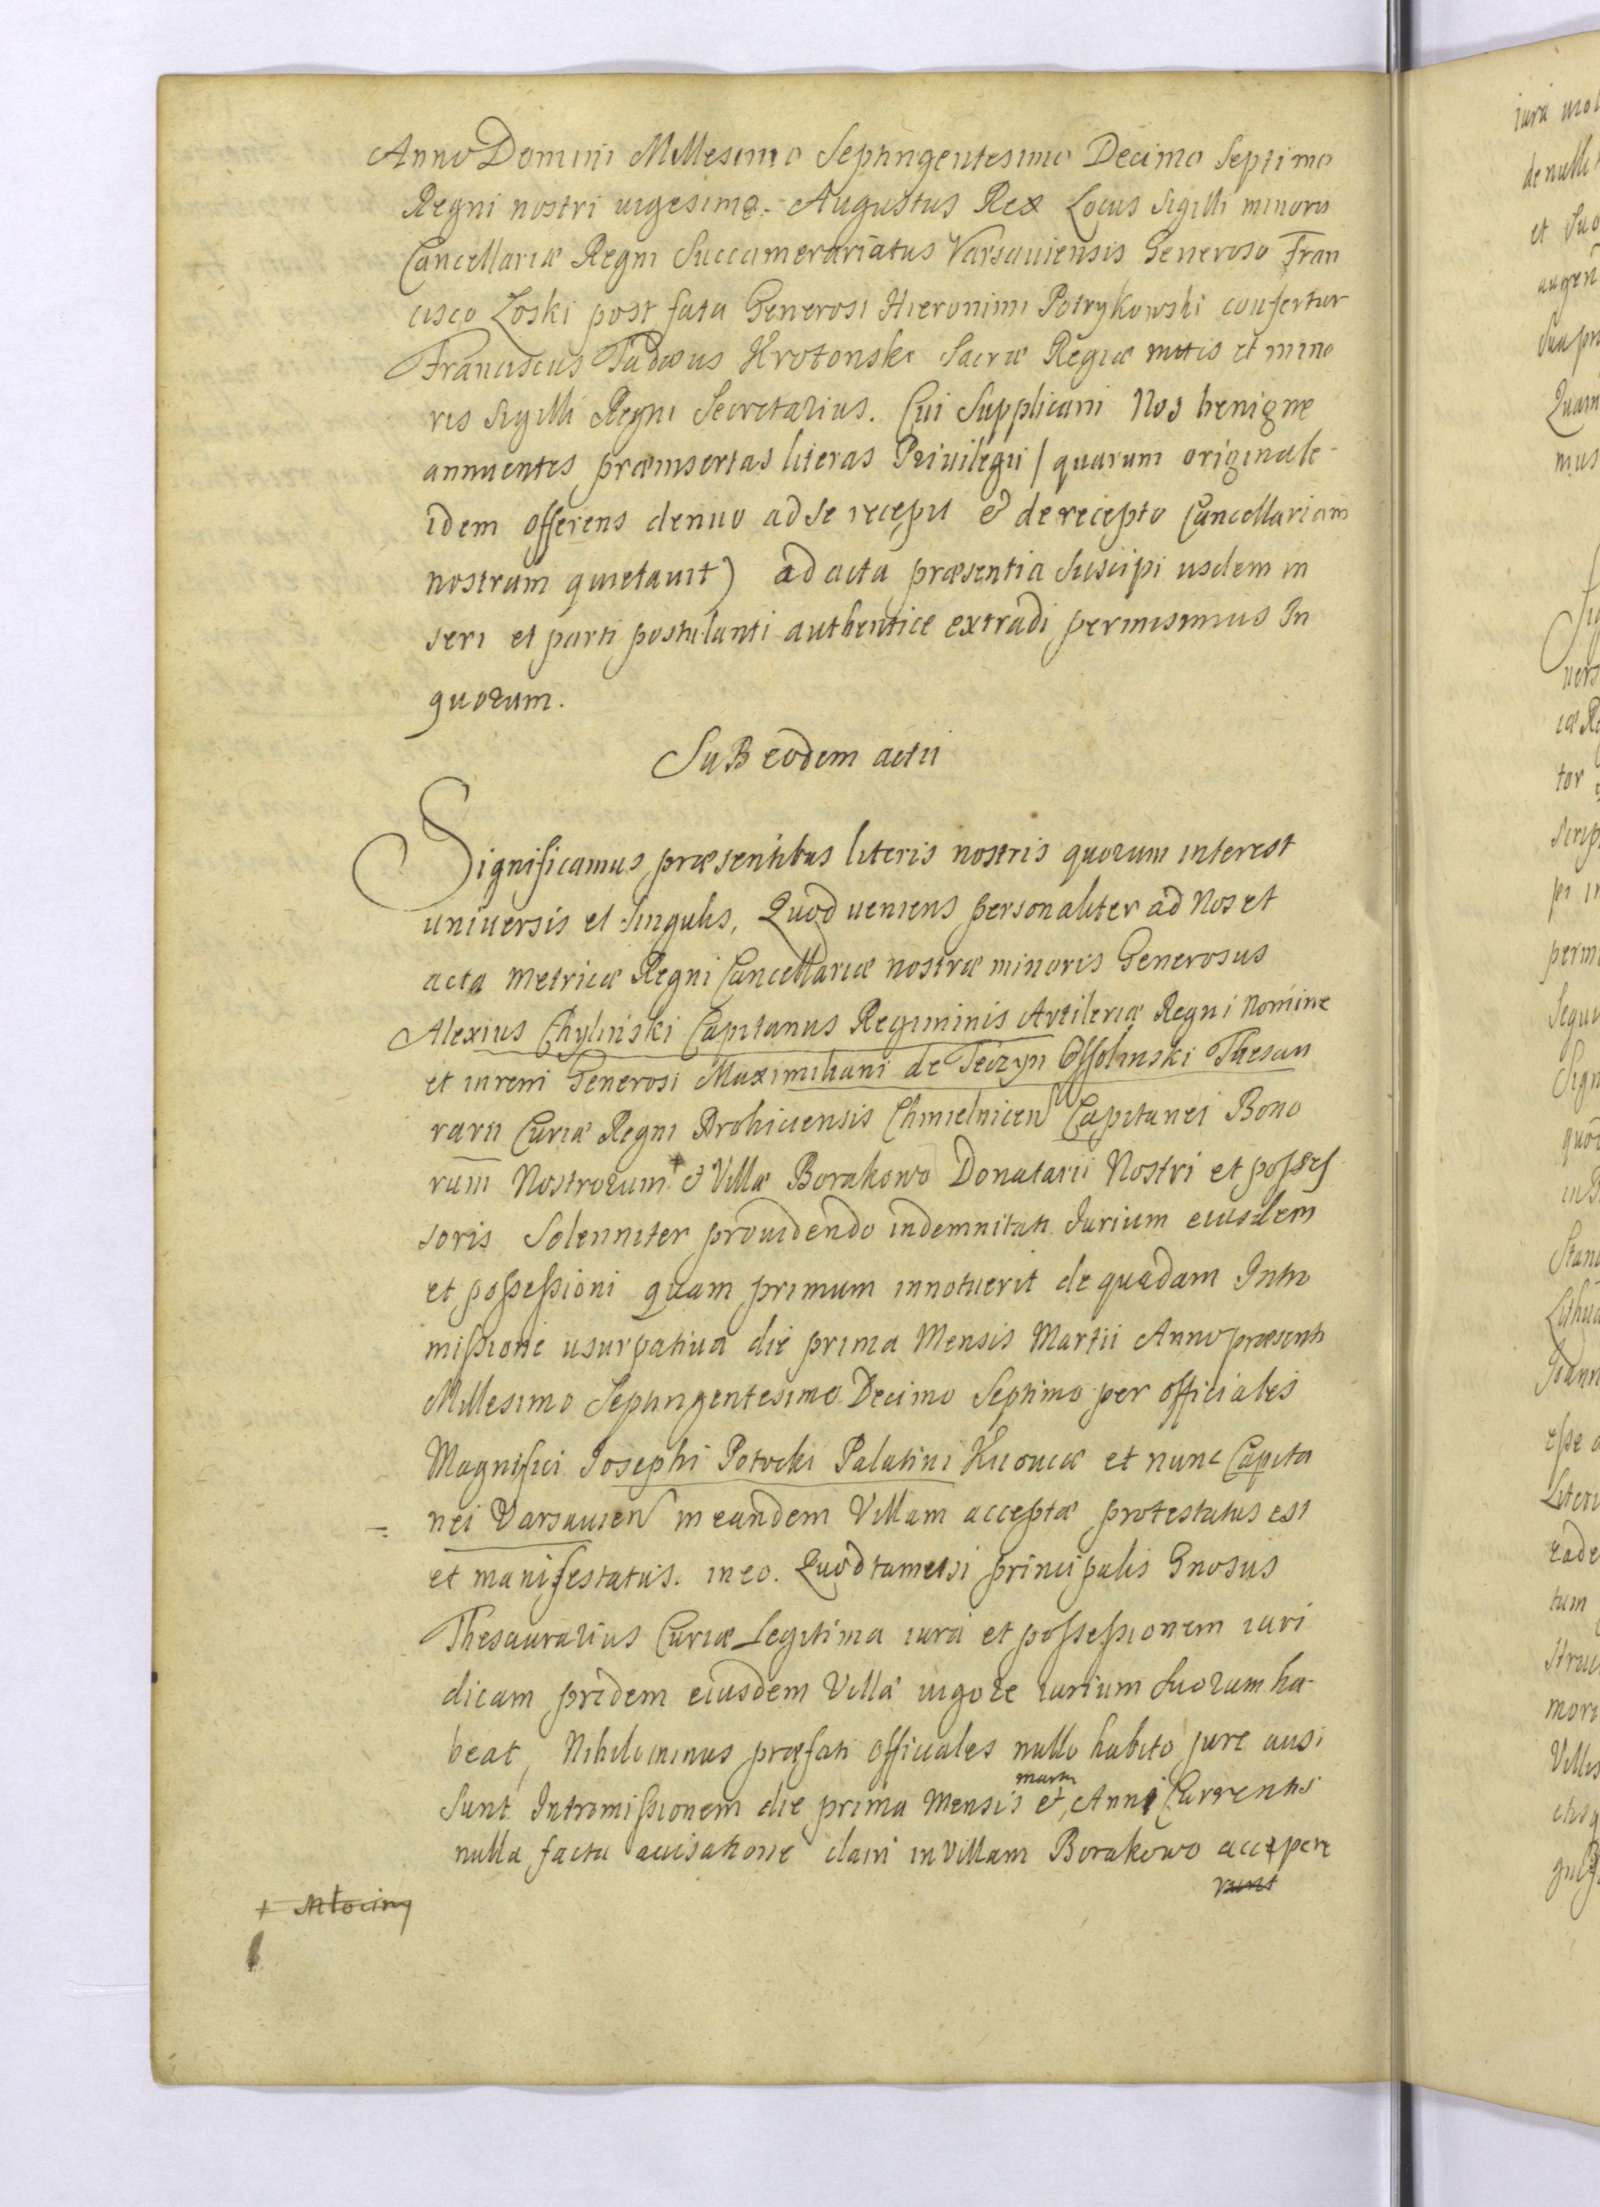 Anno Domini Millesimo Septingentesimo Decimo Septimo
Regni nostri vigesimo. Augustus Rex Locus Sigilli minoris
Cancellariæ Regni Succamerariatus Varsaviensis Generoso Fran
cisco Zoski post fata Generosi Hieronimi Potrykowski confertur
Franciscus Tadæus Sacræ Regiæ mttis et mino
ris Sigilli Regni Secretarius. Cui Supplicaōni Nos benigne
annuentes præinsertas literas Privilegii / quarum originale
idem offerens denuo ad se recepit & de recepto Cancellariam
nostram quietavit) ad acta præsentia Suscipi usdem in
seri et parti postulanti authentice extradi permisimus In
quorum.
SuB eodem actu
Significamus præsentibus literis nostris quorum interest
universis et singulis, Quod veniens personaliter ad Nos et
acta metricæ Regni Cancellariæ nostræ minoris Generosus
Alexius Chyliński Capitanus Regiminis Artileriæ Regni Nomine
et in rem Generosi Maximiliani de Teczyn Ossolinski Thesau
rarii Curiæ Regni Drohiciensis Chmielnicen Capitanei Bono
rum Nostrorum + & Villæ Borakowo Donatarii Nostri et posses
soris Solenniter providendo indemnitati Iurium eiusdem
et possessioni quam primum innotuerit de quadam Intro
missione usurpativa die prima Mensis Martii Anno præsenti
Millesimo Septingentesimo Decimo Septimo per officiales
Magnifici Josephi Potocki Palatini Kiioviæ et nunc Capita
nei Varsavien in eandem Villam acceptæ protestatus est
et manifestatus. in eo. Quod tametsi principalis Gnosus
Thesaurarius Curiæ Legitima iura et possessionem iuri
dicam pridem eiusdem Villæ vigore iurium Suorum ha
beat, Nihilominus præfati officiales nullo habito jure ausi
Sunt Intromissionem die prima Mensis martii et Anni Currentis
nulla facta avisatione clam in Villam Borakowo accepere
runt
+ Młociny
iura
de nulli
et Suo
Sua
Quam
mus
tor
Sign
Litera
eade
tum
mor
Villis